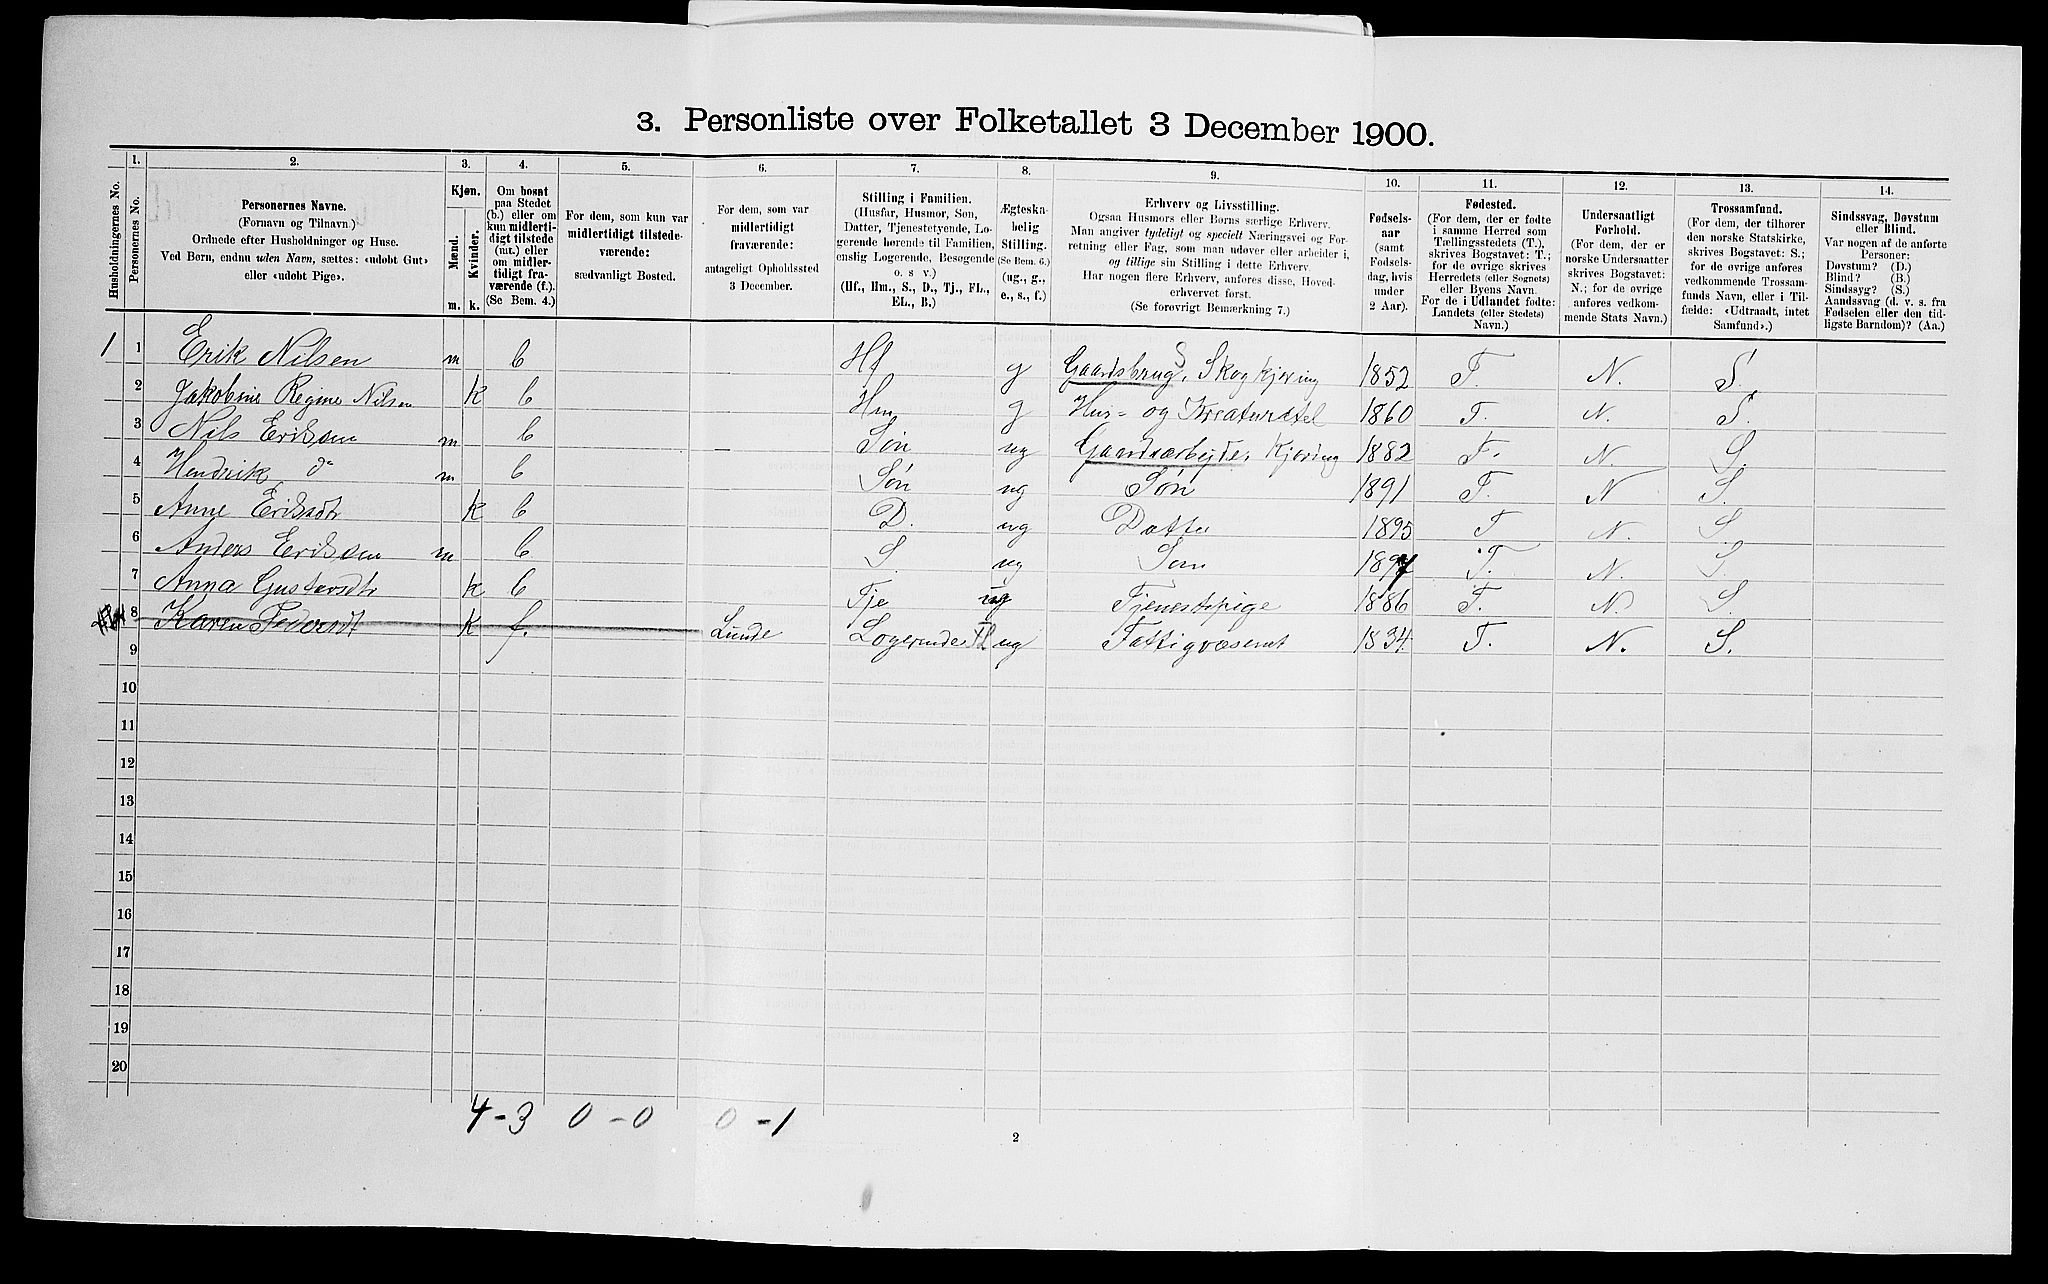 3. Personliste over Folketallet 3 December 1900.
1. 2. 3. 4. 5. 6. 7. 8. 9. 10. 11. 12. 13. 14.
Husholdningernes No.
Personernes No.
Personernes Navne.
(Fornavn og Tilnavn.)
Ordnede efter Husholdninger og Huse.
Ved Børn, endnu uden Navn, sættes: «udøbt Gut»
eller «udøbt Pige».
Kjøn.
Mænd.
Kvinder.
m. k.
Om bosat
paa Stedet
(b.) eller om
kun midlerti-
digt tilstede
(mt.) eller
om midler-
tidigt fra-
værende (f.).
(Se Bem. 4.)
For dem, som kun var
midlertidigt tilstede-
værende:
sædvanligt Bosted.
For dem, som var
midlertidigt
fraværende:
antageligt Opholdssted
3 December.
Stilling i Familien.
(Husfar, Husmor, Søn,
Datter, Tjenestetyende, Lo-
gerende hørende til Familien,
enslig Logerende, Besøgende
o. s v.)
(Hf., Hm., S., D., Tj., FL.,
EL., B.)
Ægteska-
belig
Stilling.
(Se Bem. 6.)
(ug., g.,
e., s., f.)
Erhverv og Livsstilling.
Ogsaa Husmors eller Børns særlige Erhverv.
Man angiver tydeligt og specielt Næringsvei og For-
retning eller Fag, som man udøver eller arbeider i,
og tillige sin Stilling i dette Erhverv.
Har nogen flere Erhverv, anføres disse, Hoved-
erhvervet først.
(Se forøvrigt Bemærkning 7.)
Fødsels-
aar
(samt
Fødsels-
dag, hvis
under
2 Aar).
Fødested.
(For dem, der er fødte
i samme Herred som
Tællingsstedets (T.),
skrives Bogstavet: T.;
for de øvrige skrives
Herredets (eller Sognets)
eller Byens Navn.
For de i Udlandet fødte:
Landets (eller Stedets)
Navn.)
Undersaatligt
Forhold.
(For dem, der er
norske Undersaatter
skrives Bogstavet:
N.; for de øvrige
anføres vedkom-
mende Stats Navn.)
Trossamfund.
(For dem, der tilhører
den norske Statskirke,
skrives Bogstavet: S.;
for de øvrige anføres
vedkommende Trossam-
funds Navn, eller i Til-
fælde: «Udtraadt, intet
Samfund».)
Sindssvag, Døvstum
eller Blind.
Var nogen af de anførte
Personer:
Døvstum? (D.)
Blind? (B.)
Sindssyg? (S.)
Aandssvag (d. v. s. fra
Fødselen eller den tid-
ligste Barndom)? (Aa.)
1 1 Erik Nilsen m b Hf g Gaardsbrug S, Skogkjøring 1852 T. N. S.
2 Jakobine Regine Nilsen k b Hm g Hus- og Kreaturstel 1860 T. N. S.
3 Nils Eriksen m b – Søn ug Gaardsarbejde, Kjøring 1882 T. N. S.
4 Hendrik do m b Søn ug Søn 1891 T. N S.
5 Anne Eriksdtr k b D. ug Datter 1895 T N. S.
6 Anders Eriksen m b S. ug Søn 1897 T. N. S.
7 Anna Gustavsdtr k b Tje ug Tjenestepige 1886 T. N. S.
8 Karen Pedersdt k f. Lunde Logerende FL ug Fattigvæsenet 1834 T. N. S.
9
10
11
12
13
14
15
16
17
18
19
20
4 - 3 0 - 0 0 - 1
2